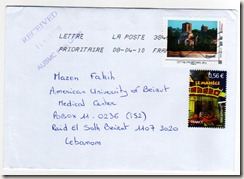 RECEIVED
LETTRE LA POSTE 384
PRIORITAIRE 08-04-10 FRAN
LE MANÈGE
0,56 €
Mazen Fakih
American University of Beirut
Medical Center
POBOX 11-0236 (152)
Riad El Solh Beirut 1107 2020
Lebanon